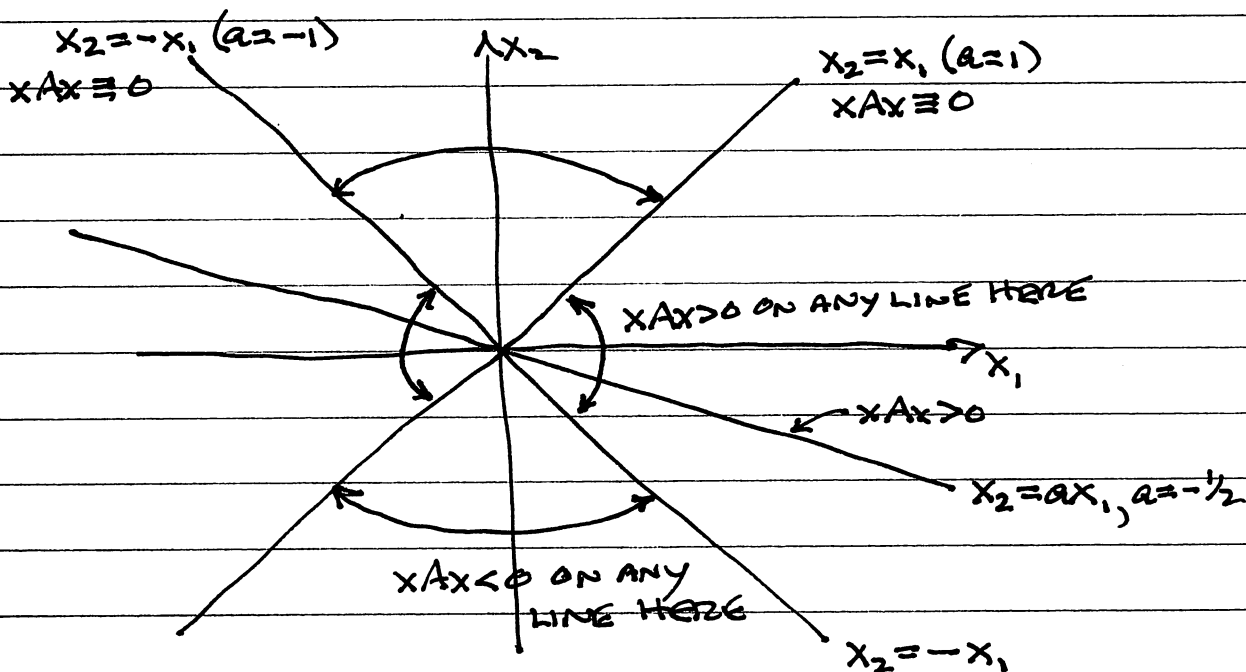 x₂=-x₁ (a=-1)
xAx≡0
x₂
x₂=x₁ (a=1)
xAx≡0
xAx>0 ON ANY LINE HERE
x₁
xAx>0
x₂=ax₁, a=-1/2
xAx<0 ON ANY
LINE HERE
x₂=-x₁